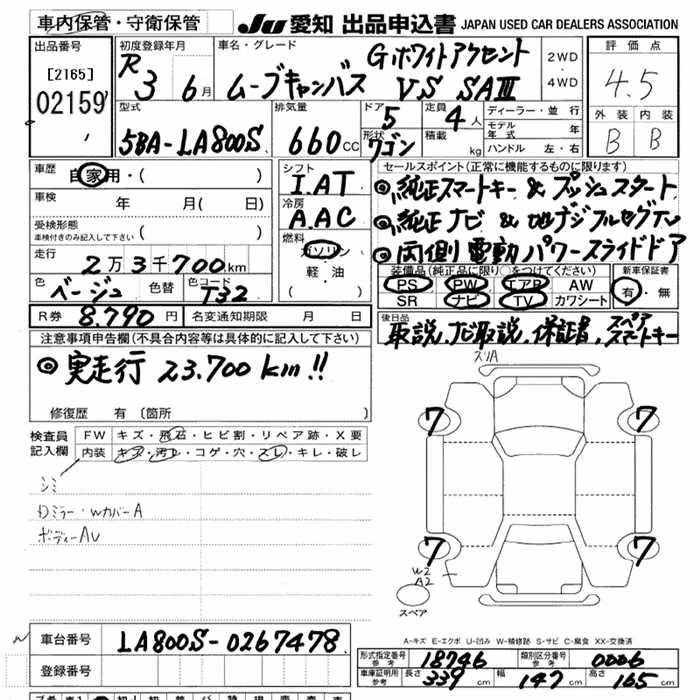 車内保管・守衛保管 JU 愛知 出品申込書 JAPAN USED CAR DEALERS ASSOCIATION
出品番号 [2165] 02159
初度登録年月 R 3 6月
車名・グレード Gホワイトアクセント
ムーブキャンバス VS SAⅢ
2WD ・ 4WD
評価点 4.5
外装 内装
B B
型式 5BA-LA800S
排気量 660cc
ドア 5
形状 ワゴン
定員 4人
積載 kg
ディーラー・並行
モデル年式 年
ハンドル 左・右
車歴 自家用・( )
車検 年 月( 日)
受検形態
車検付きのみ記入して下さい ( )
走行 2万3千700km
色 ベージュ 色替 色コード T32
R券 8.790円 名変通知期限 月 日
シフト I.AT
冷房 A.AC
燃料 ガソリン・軽・油
( )
セールスポイント(正常に機能するものに限ります)
◎純正スマートキー & プッシュスタート
◎純正ナビ & 地デジフルセグTV
◎両側電動パワースライドドア
装備品(純正品に限り○をつけてください)
PS PW エアB AW
SR ナビ TV カワシート
新車保証書
有・無
後日品 取説、ナビ取説、保証書、スペアスマートキー
注意事項申告欄(不具合内容等は具体的に記入して下さい)
◎実走行 23.700km!!
修復歴 有 〔箇所 〕
検査員記入欄
FW キズ・飛石・ヒビ割・リペア跡・X要
内装 キズ・汚レ・コゲ・穴・スレ・キレ・破レ
シミ
Dミラー・WカバーA
ボディーAU
ズリA
7 7
7 7
W2
A2
スペア
A-キズ E-エクボ U-凹み W-補修跡 S-サビ C-腐食 XX-交換済
車台番号 LA800S-0267478
登録番号
形式指定番号 参考 18746 類別区分番号 参考 0006
車庫証明用 参考 長さ 339cm 幅 147cm 高さ 165cm